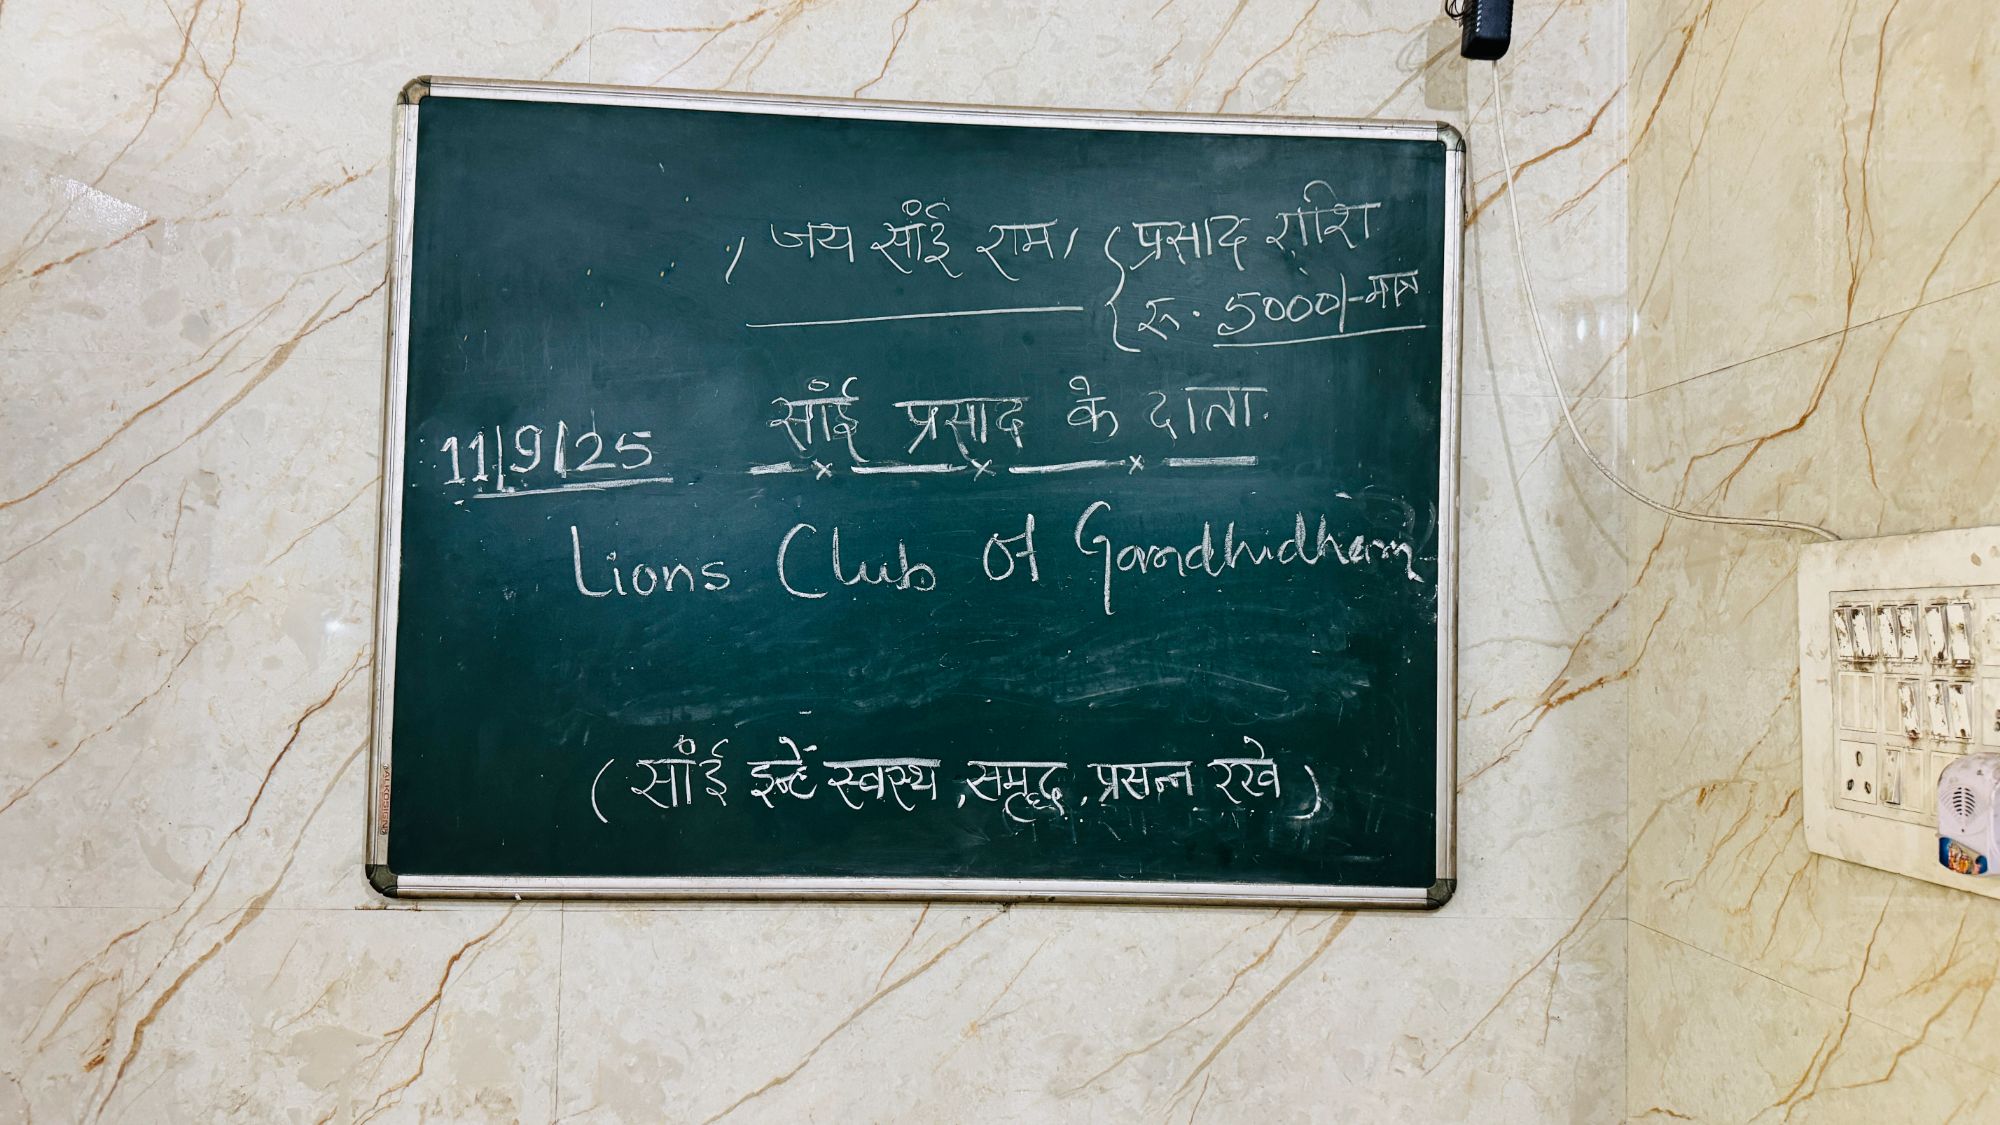 । जय साँई राम। { प्रसाद राशि
रू. 5000/-मात्र
साँई प्रसाद के दाता.
11/9/25
Lions Club of Gandhidham
( साँई इन्हें स्वस्थ, समृद्ध, प्रसन्न रखे )